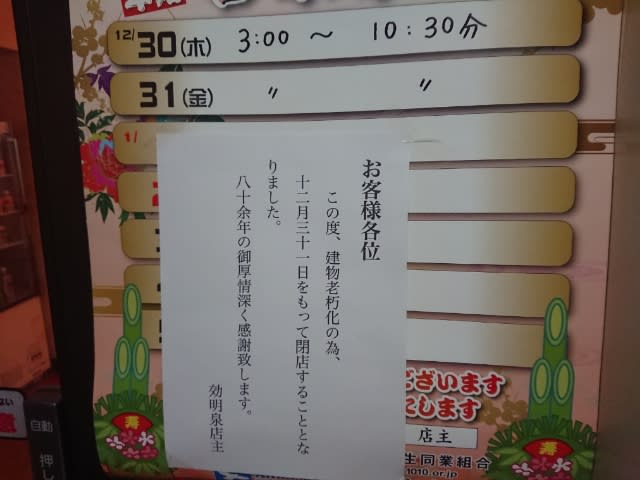 12/30(木) 3:00 〜 10:30分
31(金) 〃 〃
1/
お客様各位
この度、建物老朽化の為、
十二月三十一日をもって閉店することとな
りました。
八十余年の御厚情深く感謝致します。
効明泉店主
ございます
します
店主
生同業組合
1010.or.jp
寿
寿
自動
押し
ない